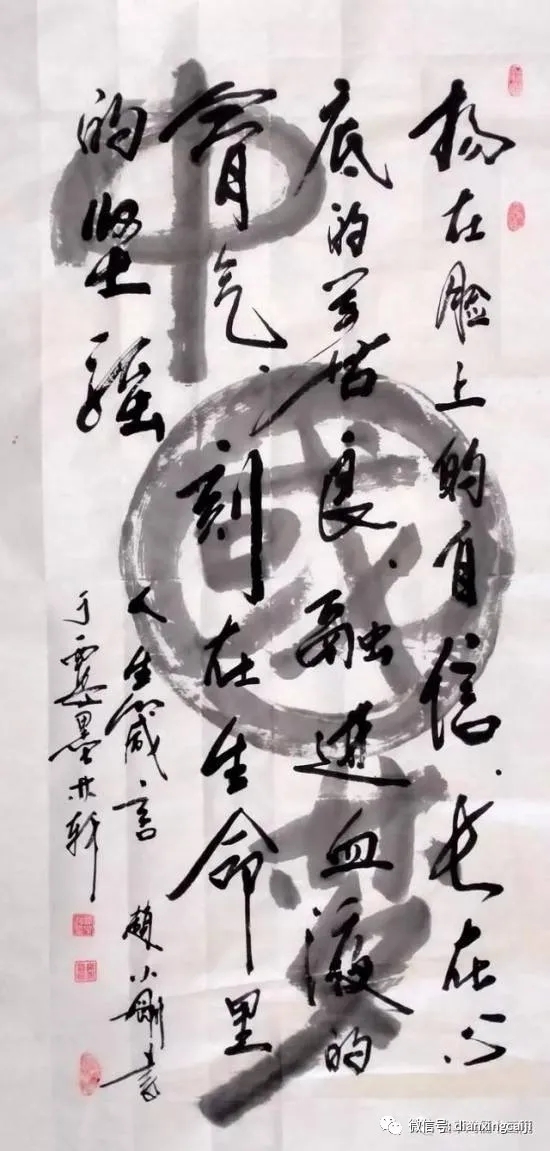 扬在脸上的自信、长在心
底的善良、融进血液的
骨气、刻在生命里
的坚强
人生箴言 趙小剛書
于西墨轩
中國梦
微信号: dianxingcaiji